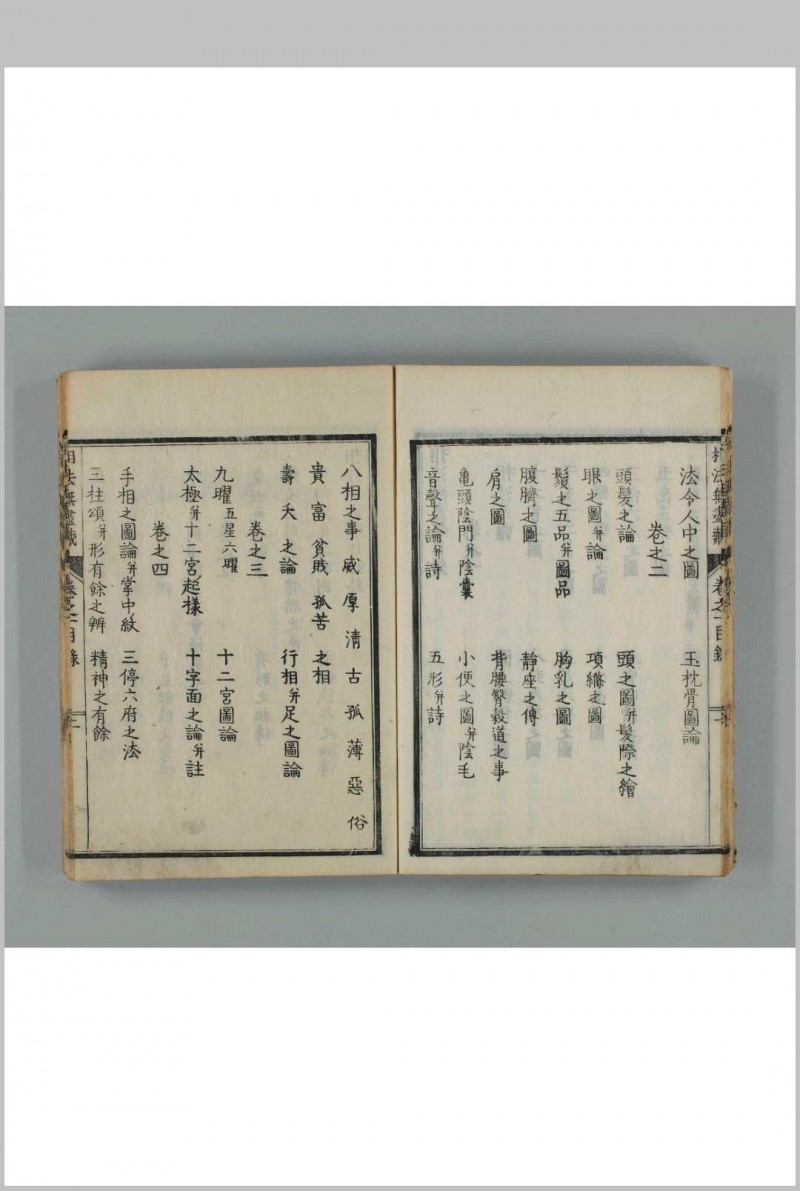 法令人中之圖　玉枕骨圖論
卷之二
頭髮之論　頭之圖并髮際之繪
眼之圖并論　項纎之圖
鬚之五品并圖品　胸乳之圖
腹臍之圖　靜座之傳
肩之圖　背腰臀穀道之事
亀頭陰門并陰囊　小便之圖并陰毛
音聲之論并詩　五形并詩
八相之事　威厚清古孤薄惡俗
貴富貧賎孤苦之相
壽夭之論　行相并足之圖論
卷之三
九曜五星六曜　十二宮圖論
太極并十二宮起様　十字面之論并註
卷之四
手相之圖論并掌中紋　三停六府之法
三柱頌并形有餘之辨　精神之有餘
相法無盡蔵　卷之一目録　二